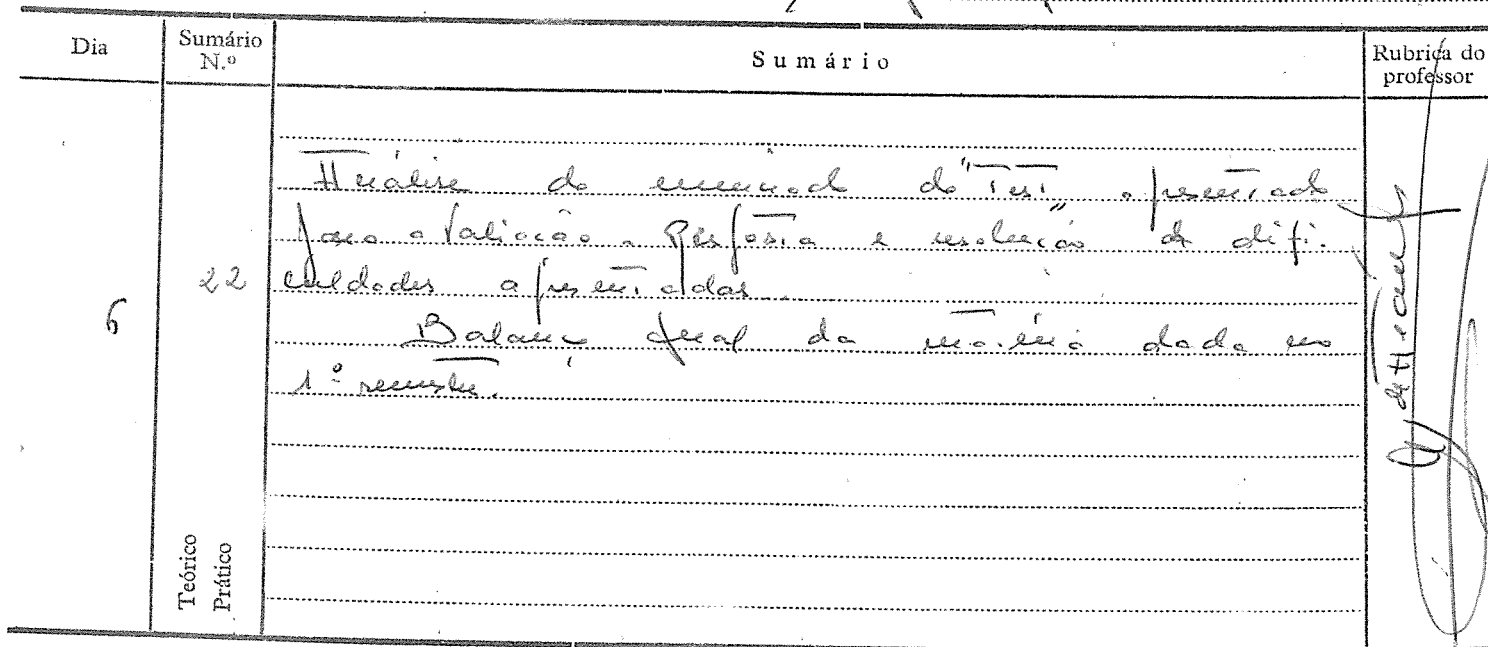 Dia
Sumário N.º
Sumário
Rubrica do professor
6
22
Análise do enunciado do "Test" apresentado
para avaliação. Resposta e resolução de difi-
culdades apresentadas.
Balanço geral da matéria dada no
1º semestre.
Teórico
Prático